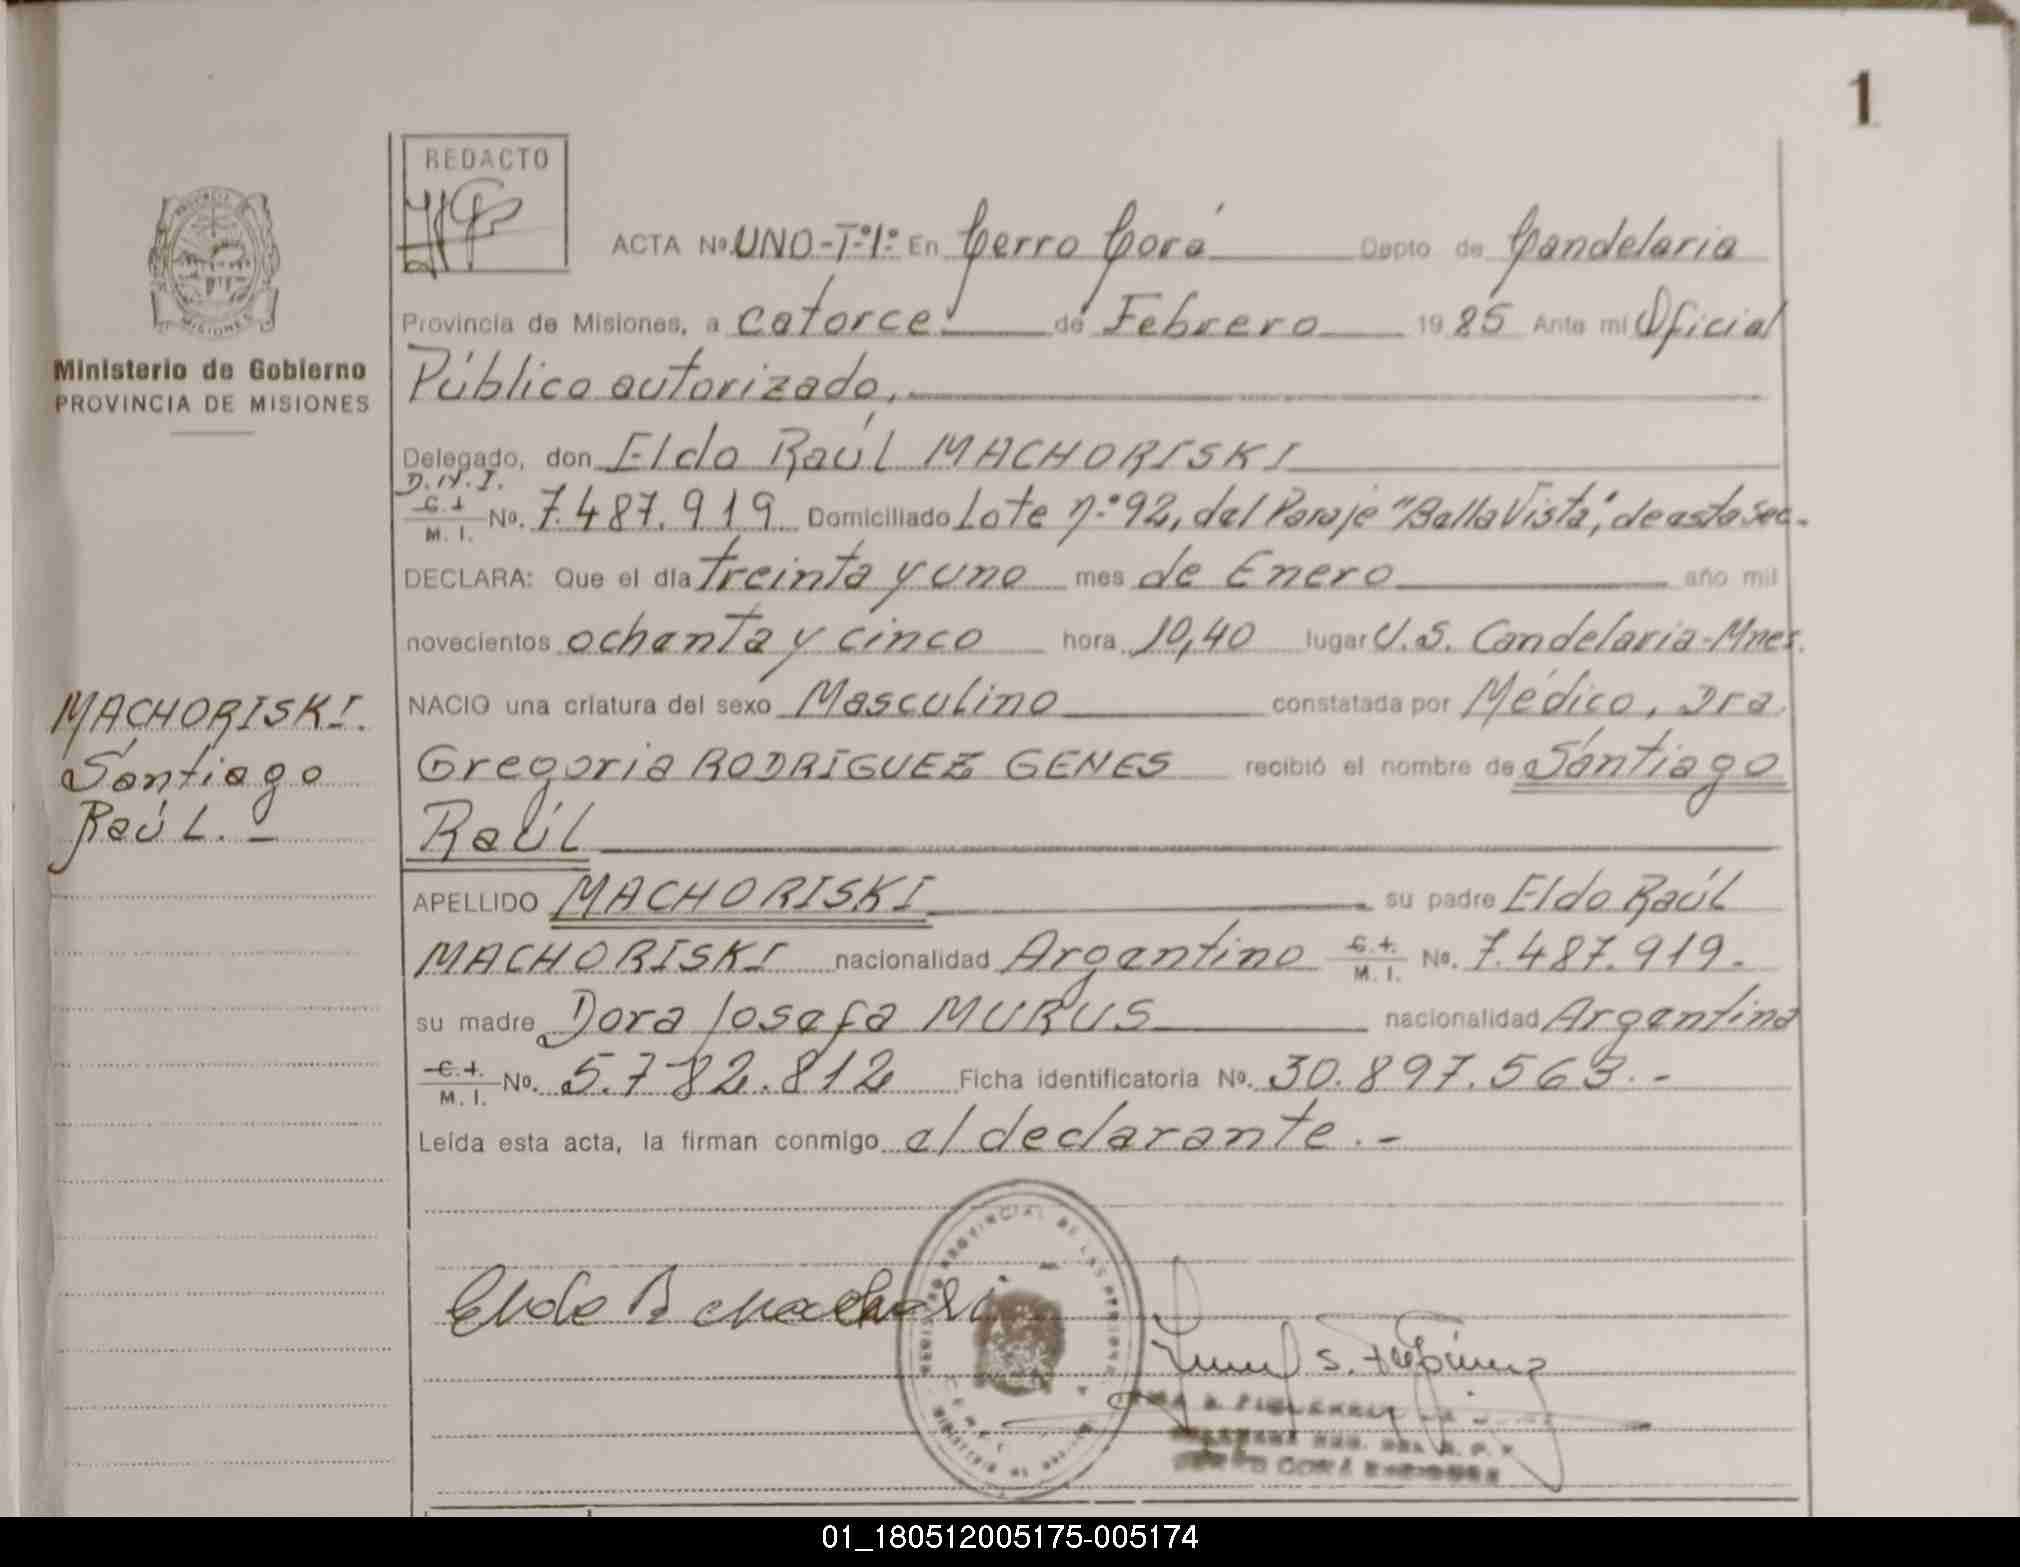 1
REDACTO
ACTA No. UNO-Tº1º En Cerro Corá Depto de Candelaria
Provincia de Misiones, a catorce de Febrero 1985 Ante mi Oficial
Público autorizado,
Delegado, don Eldo Raúl MACHORISKI
D.N.I.
C.I. M. I. No. 7.487.919 Domiciliado Lote n.º 92, del Paraje "Bella Vista", de esta Sec.
DECLARA: Que el día treinta y uno mes de Enero año mil
novecientos ochenta y cinco hora 10,40 lugar U.S. Candelaria-Mnes.
NACIO una criatura del sexo Masculino constatada por Médico, Dra.
Gregoria RODRÍGUEZ GENES recibió el nombre de Santiago
Raúl
APELLIDO MACHORISKI su padre Eldo Raúl
MACHORISKI nacionalidad Argentino C.I. M. I. No. 7.487.919.
su madre Dora Josefa MURUS nacionalidad Argentina
C.I. M. I. No. 5.782.812 Ficha identificatoria No. 30.897.563.-
Leída esta acta, la firman conmigo el declarante.-
Ministerio de Gobierno
PROVINCIA DE MISIONES
MACHORISKI.
Santiago
Raúl.-
PROVINCIAL DE LAS PERSONAS
CERRO CORA MISIONES
01_180512005175-005174